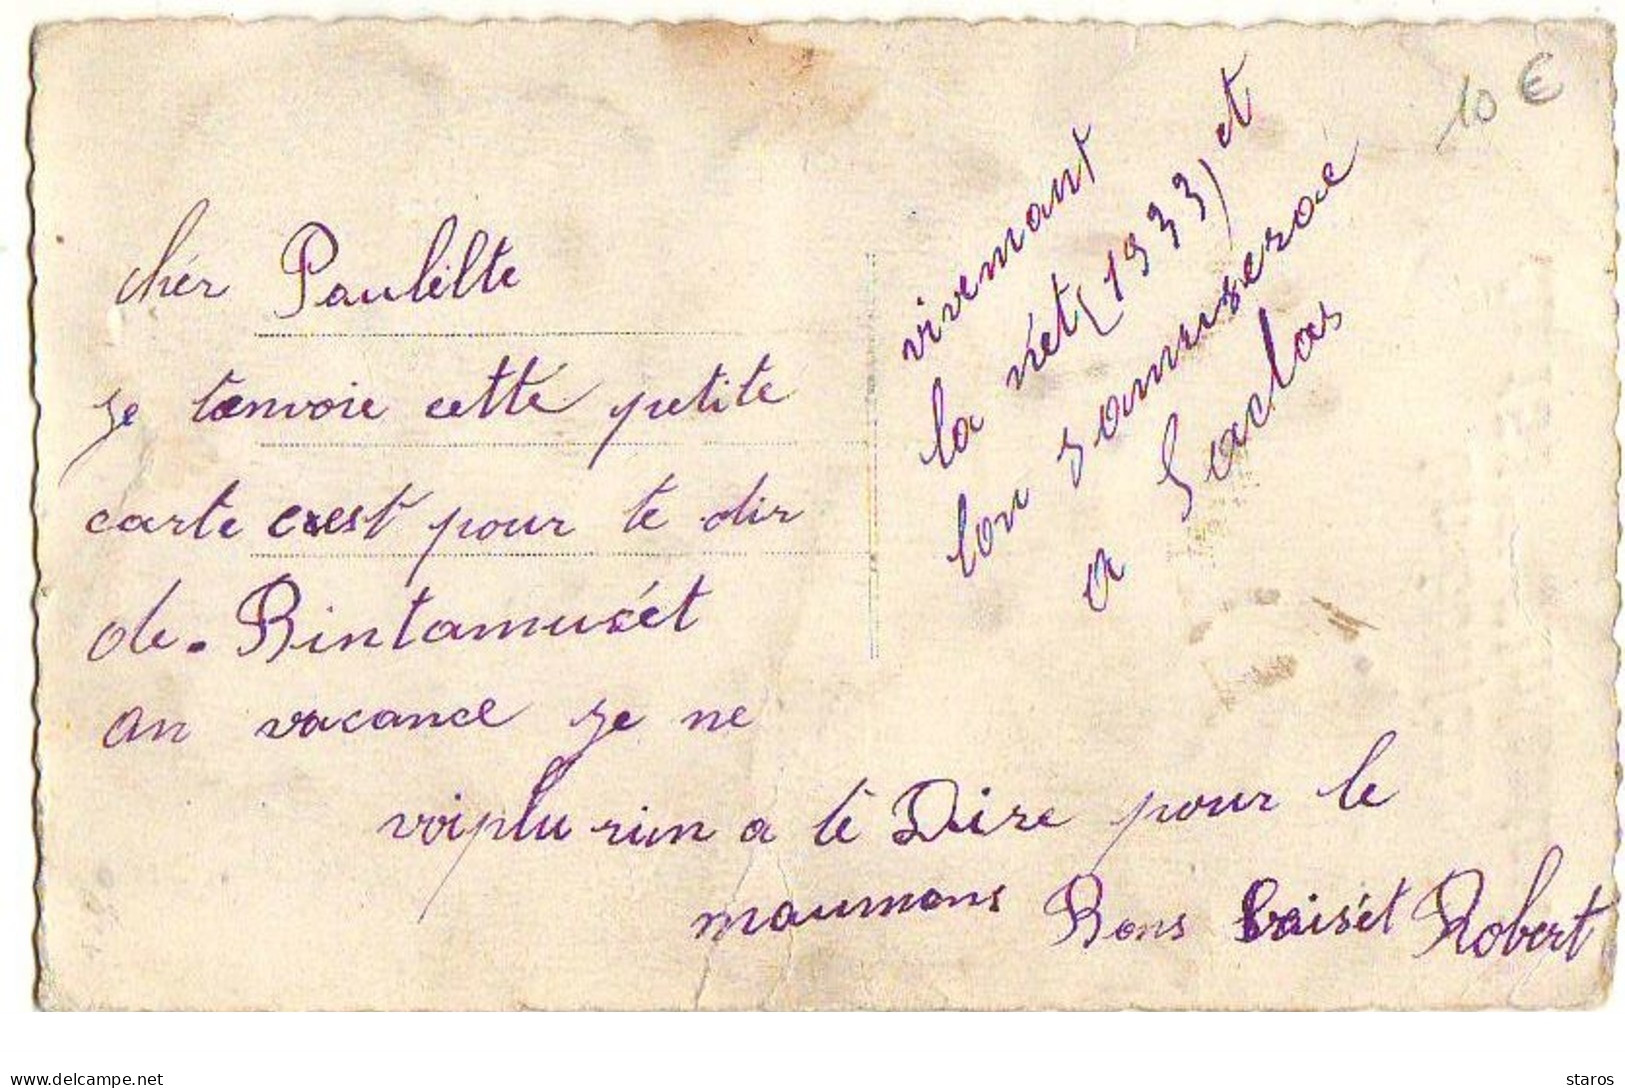 chér Paulètte
je tanvoie cette petite
carte cest pour te dir
de. Bintamusét
an vacance je ne
voiplu rien a té Dire pour le
maumans Bons baisét Robert
vivemant
la nét (1933) et
lon samuseroé
a Saclas
10 €
delcampe.net
staros